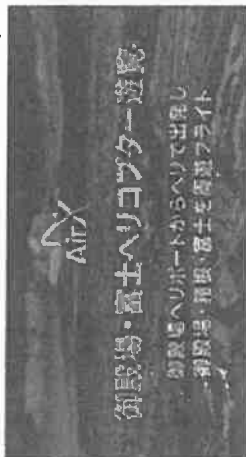 AirX
御殿場・富士ヘリコプター遊覧
御殿場ヘリポートからヘリで出発し
御殿場・箱根・富士を周遊フライト